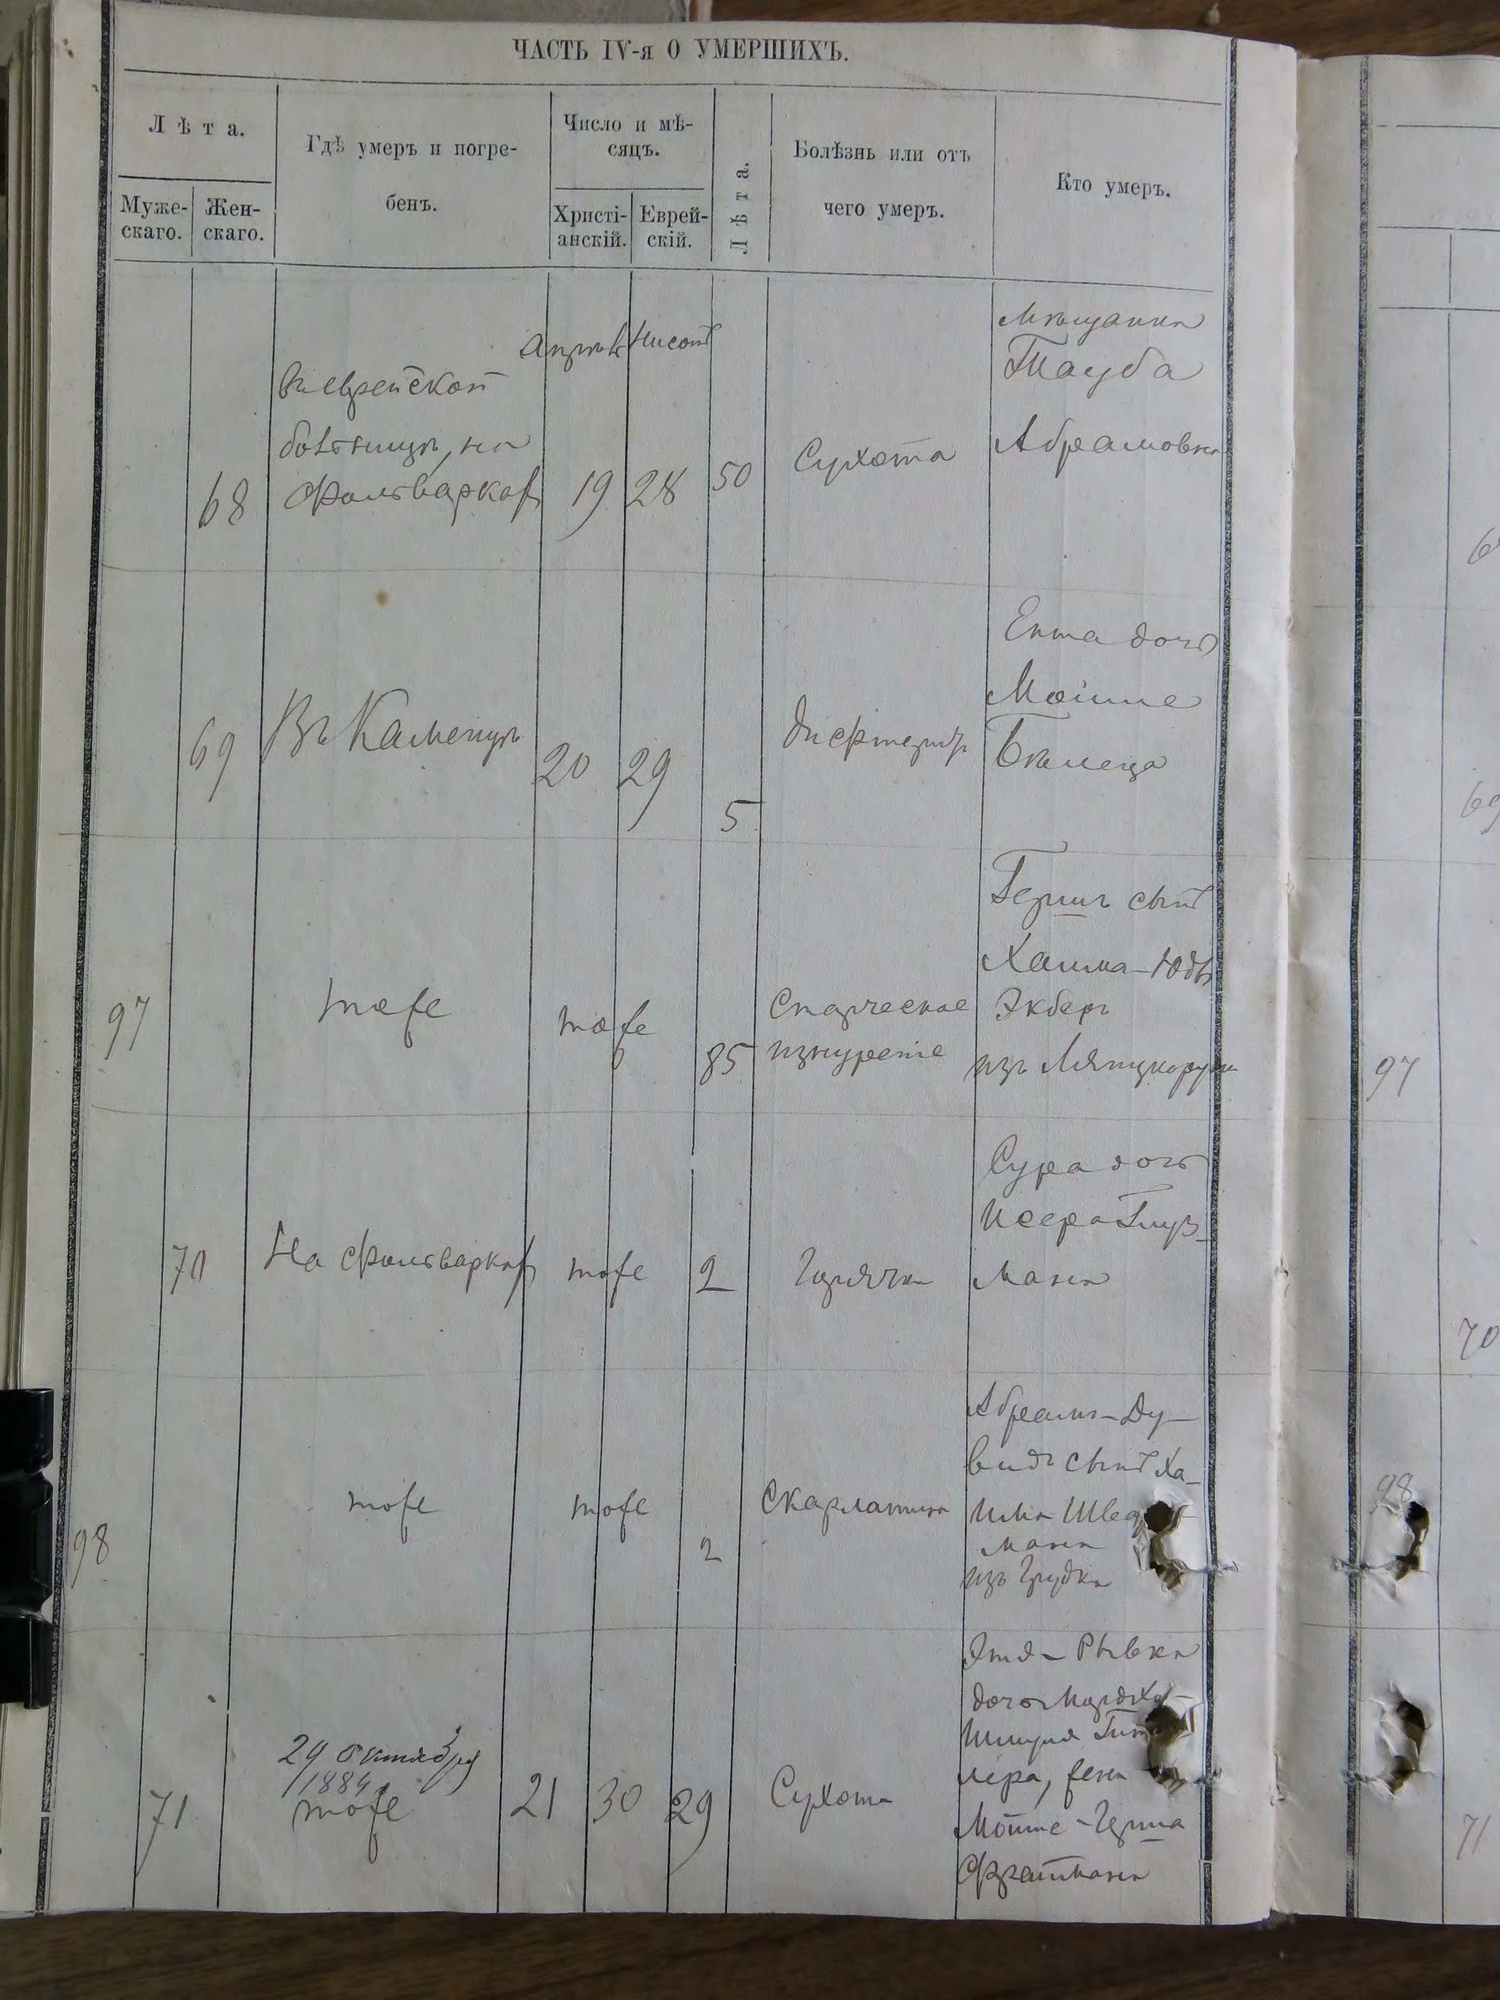 ЧАСТЬ IV-я О УМЕРШИХЪ.
Лѣта.
Муже-
скаго.
Жен-
скаго.
Гдѣ умеръ и погре-
бенъ.
Число и мѣ-
сяцъ.
Христі-
анскій.
Еврей-
скій.
Лѣта.
Болѣзнь или отъ
чего умеръ.
Кто умеръ.
68
въ еврейской
больницѣ, на
Фольваркахъ
Апрель
19
Нисонъ
28
50
Сухота
Мѣщанка
Тауба
Абрамовна
69
Въ Каменцѣ
20
29
5
дифтеритъ
Ента дочь
Мойше
97
тоже
тоже
85
Старческое
изнуреніе
Гершъ сынъ
Хаима-Юды
Экберъ
изъ Лянцкоруня
70
На Фольваркахъ
тоже
2
Горячка
Сура дочь
Исера Глуз-
мана
98
тоже
тоже
2
Скарлатина
Абрамъ-Ду-
видъ сынъ Ха-
има
мана
изъ Грудка
71
29 октября
1884
тоже
21
30
29
Сухота
Этя-Рывка
дочь Мордха-
Шмуля
лера, жена
Мойше-Герша
Фраймана
68
69
97
70
98
71